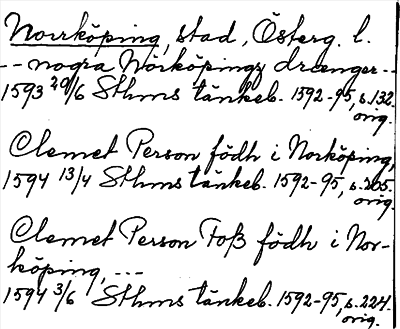 Norrköping, stad, Österg. l.
-- nogra Nörköpingz drænger --
1593 20/6 Sthms tänkeb. 1592-95, s. 132.
orig.
Clemet Person födh i Norköping,
1594 13/4 Sthms tänkeb. 1592-95, s. 205.
orig.
Clemet Person Foß födh i Nor-
köping, ---
1594 3/6 Sthms tänkeb. 1592-95, s. 224.
orig.